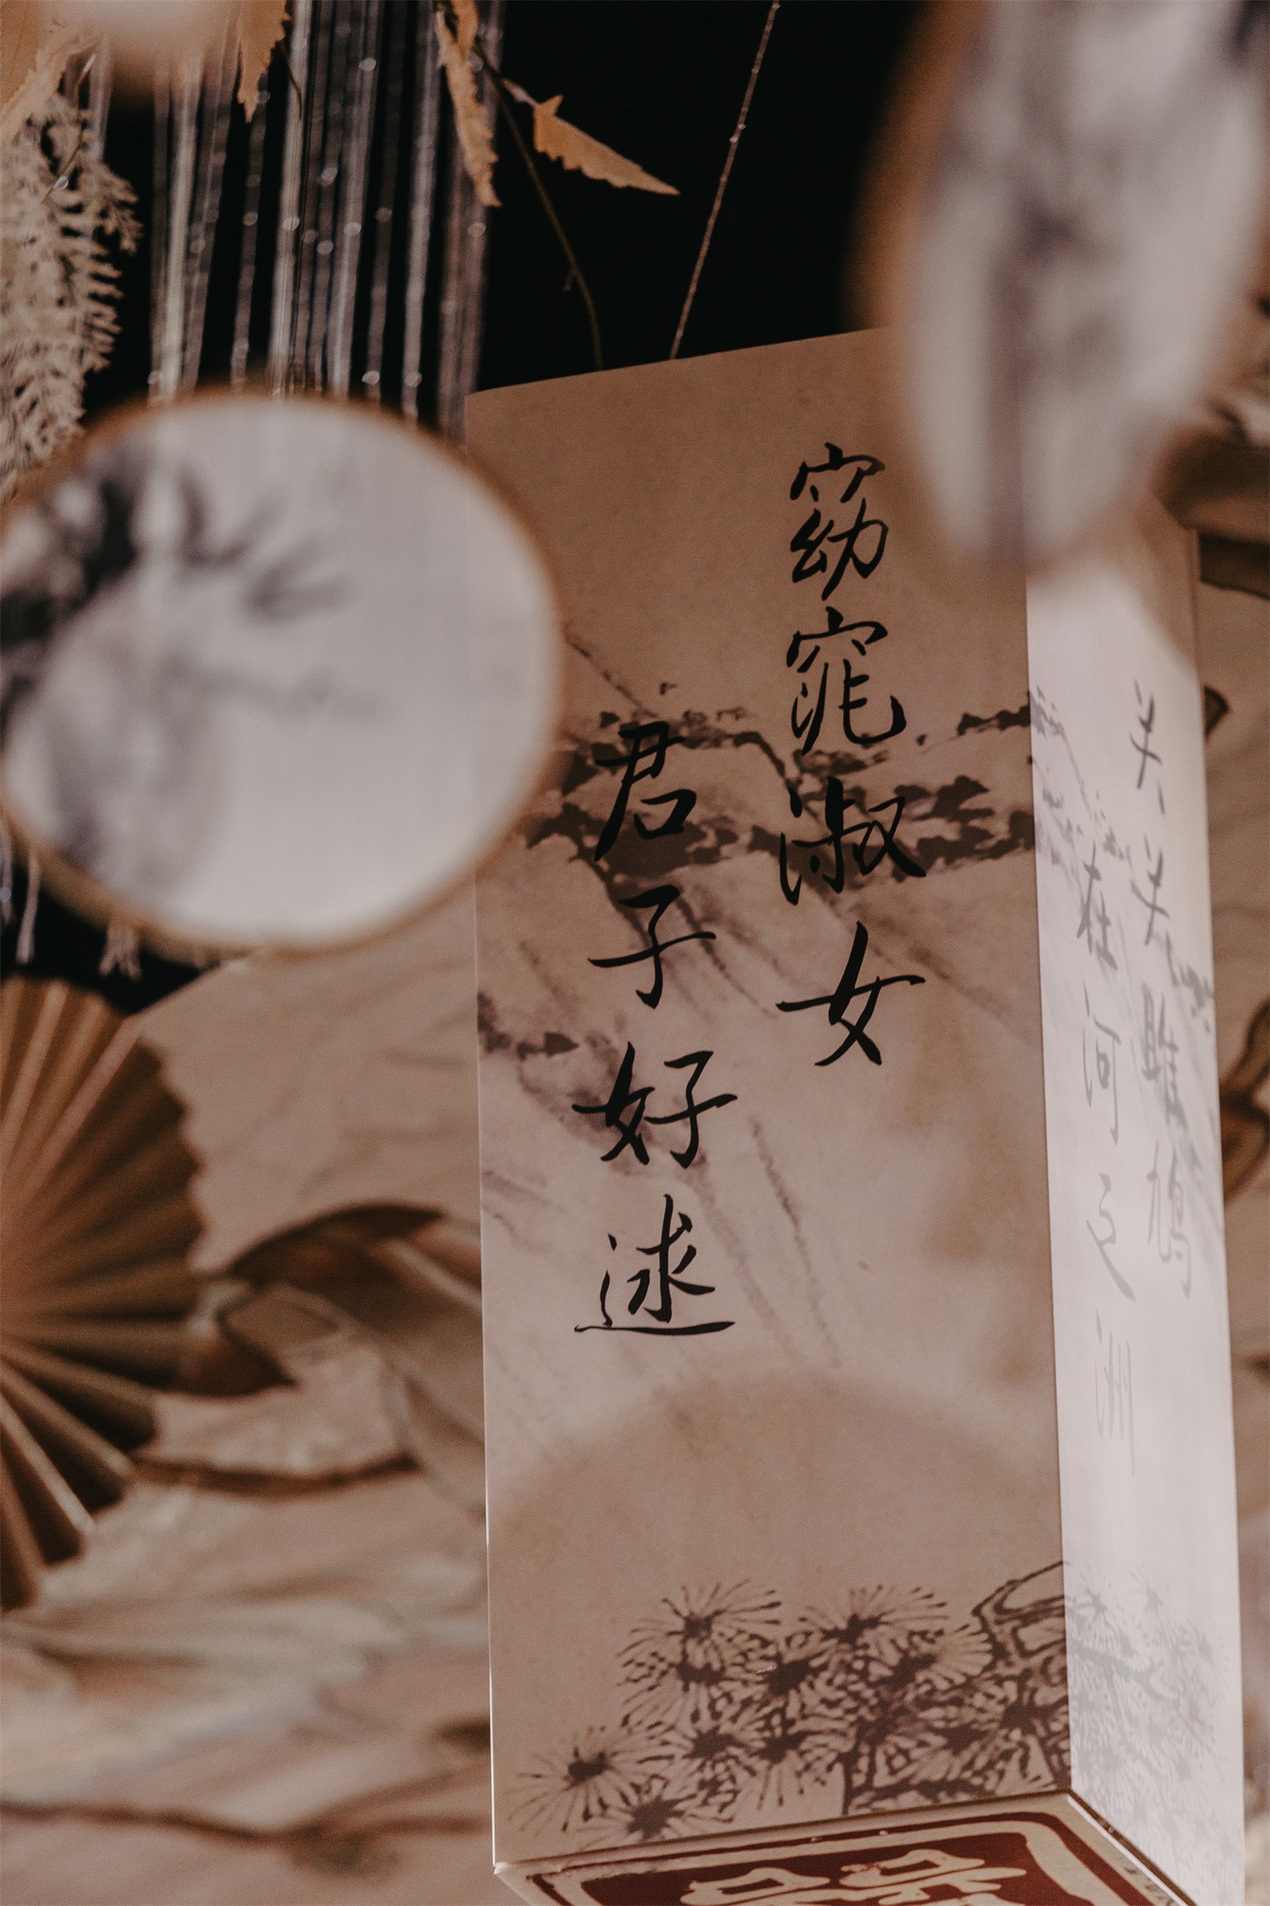 关关雎鸠
在河之洲
窈窕淑女
君子好逑